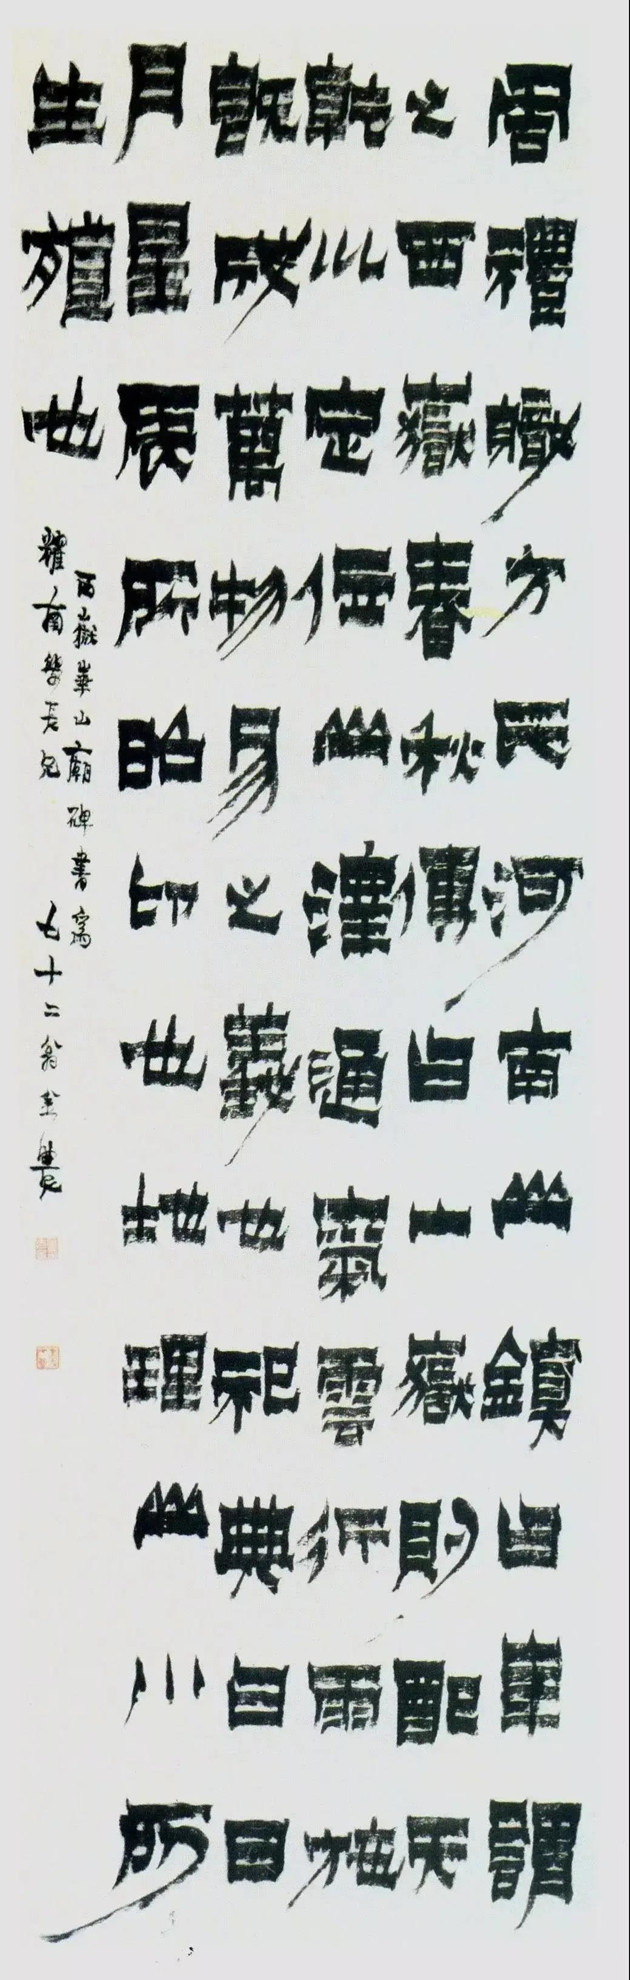 周禮職方氏河南山鎮曰華謂
之西嶽春秋傳曰山嶽則配天
乾巛定位山澤通氣雲行雨施
既成萬物易之義也祀典曰日
月星辰所昭卬也地理山川所
生殖也
西嶽華山廟碑書
耀南學長兄 七十二翁金農